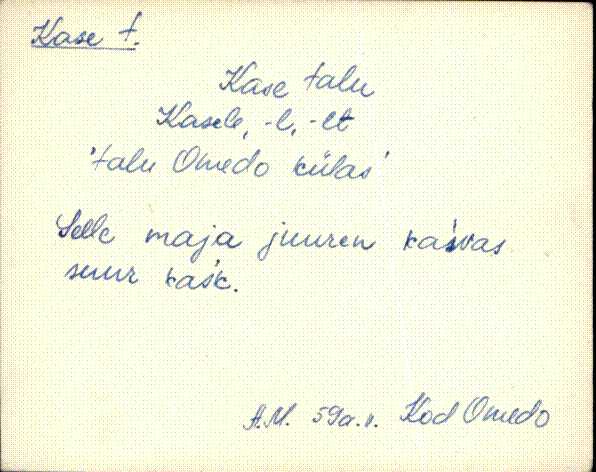 Kase t.
Kase talu
Kasele, -l, -lt
'talu Omedo külas'
Selle maja juuren kaśvas
suur kaśk.
A.M. 59a.v. Kod Omedo